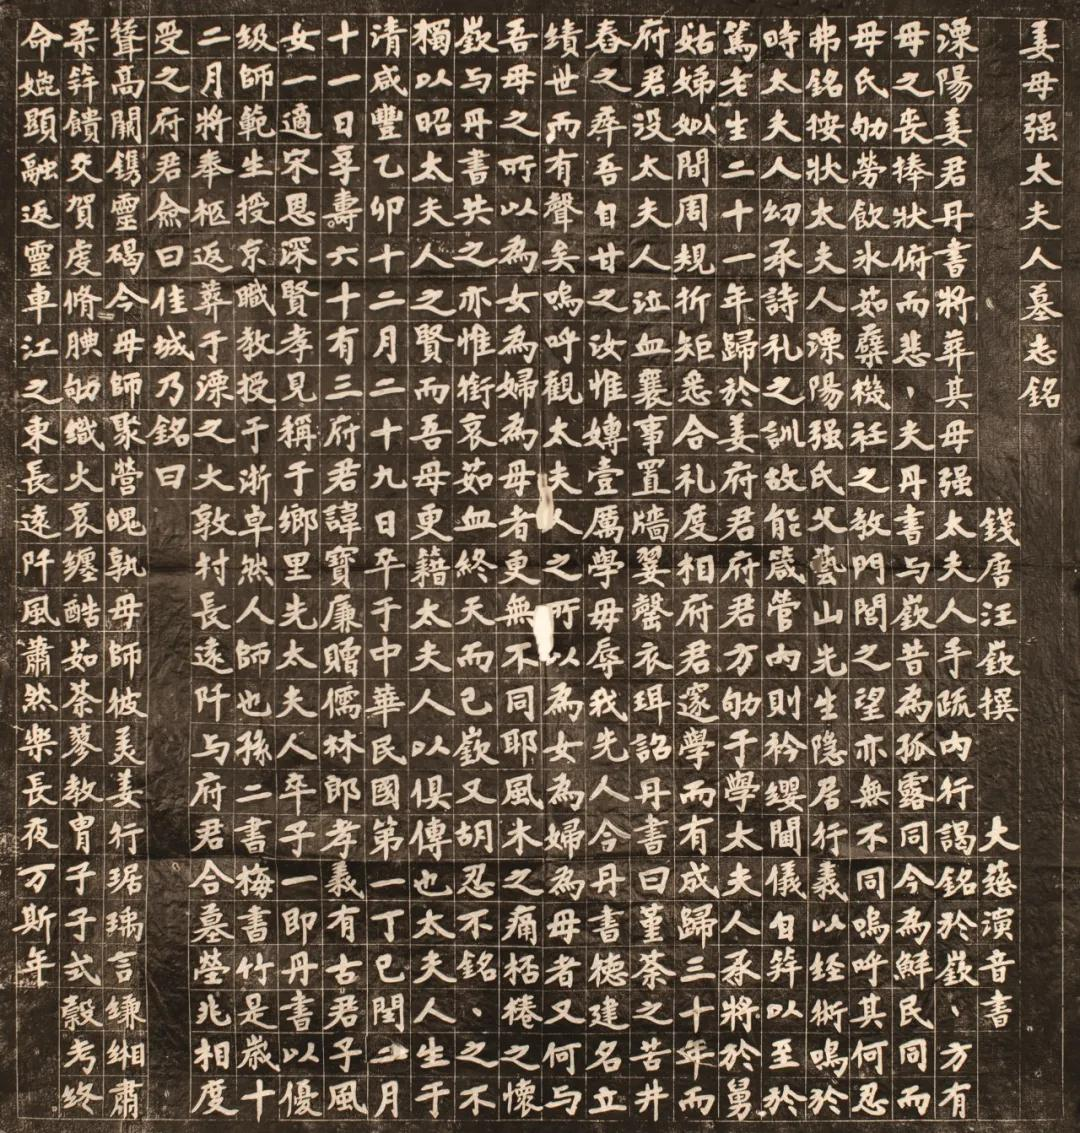 姜母强太夫人墓志銘
錢唐汪嶔撰 大慈演音書
溧陽姜君丹書將葬其母强太夫人手疏內行謁銘於嶔、方有
母之喪捧狀俯而悲、夫丹書与嶔昔為孤露同今為鮮民同而
母氏劬勞飲冰茹蘗機之教門閭之望亦無不同嗚呼其何忍
弗銘按狀太夫人溧陽强氏父藝山先生隐居行義以经術鳴於
時太夫人幼承詩礼之訓故能箴管內則衿纓閫儀自笄以至於
篤老生二十一年歸於姜府君府君方劬于學太夫人承將於舅
姑娣姒間周規折矩悉合礼度相府君邃學而有成歸三十年而
府君没太夫人泣血襄事置牆翣罄衣珥詔丹書曰堇荼之苦井
舂之瘁吾自甘之汝惟嫥壹厲學毋辱我先人今丹書德建名立
績世而有聲矣嗚呼觀太夫人之所以為女為婦為母者又何与
吾母之所以為女為婦為母者更無不同耶風木之痛栝棬之懷
嶔与丹書共之亦惟銜哀茹血終天而已嶔又胡忍不銘、之不
獨以昭太夫人之賢而吾母更籍太夫人以俱傳也太夫人生于
清咸豐乙卯十二月二十九日卒于中華民國第一丁巳閏二月
十一日享壽六十有三府君諱寶廉贈儒林郎孝義有古君子風
女一適宋恩深賢孝見稱于鄉里先太夫人卒子一即丹書以優
级師範生授京職教授于浙卓然人師也孫二書梅書竹是歲十
二月將奉柩返葬于溧之大敦村長遠阡与府君合墓塋兆相度
受之府君僉曰佳城乃銘曰
聳高闕鐫靈碣今母師聚營魄孰母師彼美姜行琚瑀言縑緗肅
柔笄饋交賀虔脩腆劬織火哀纏酷茹荼蓼教胄子子式榖考終
命顕融返靈車江之東長遠阡風蕭然樂長夜万斯年